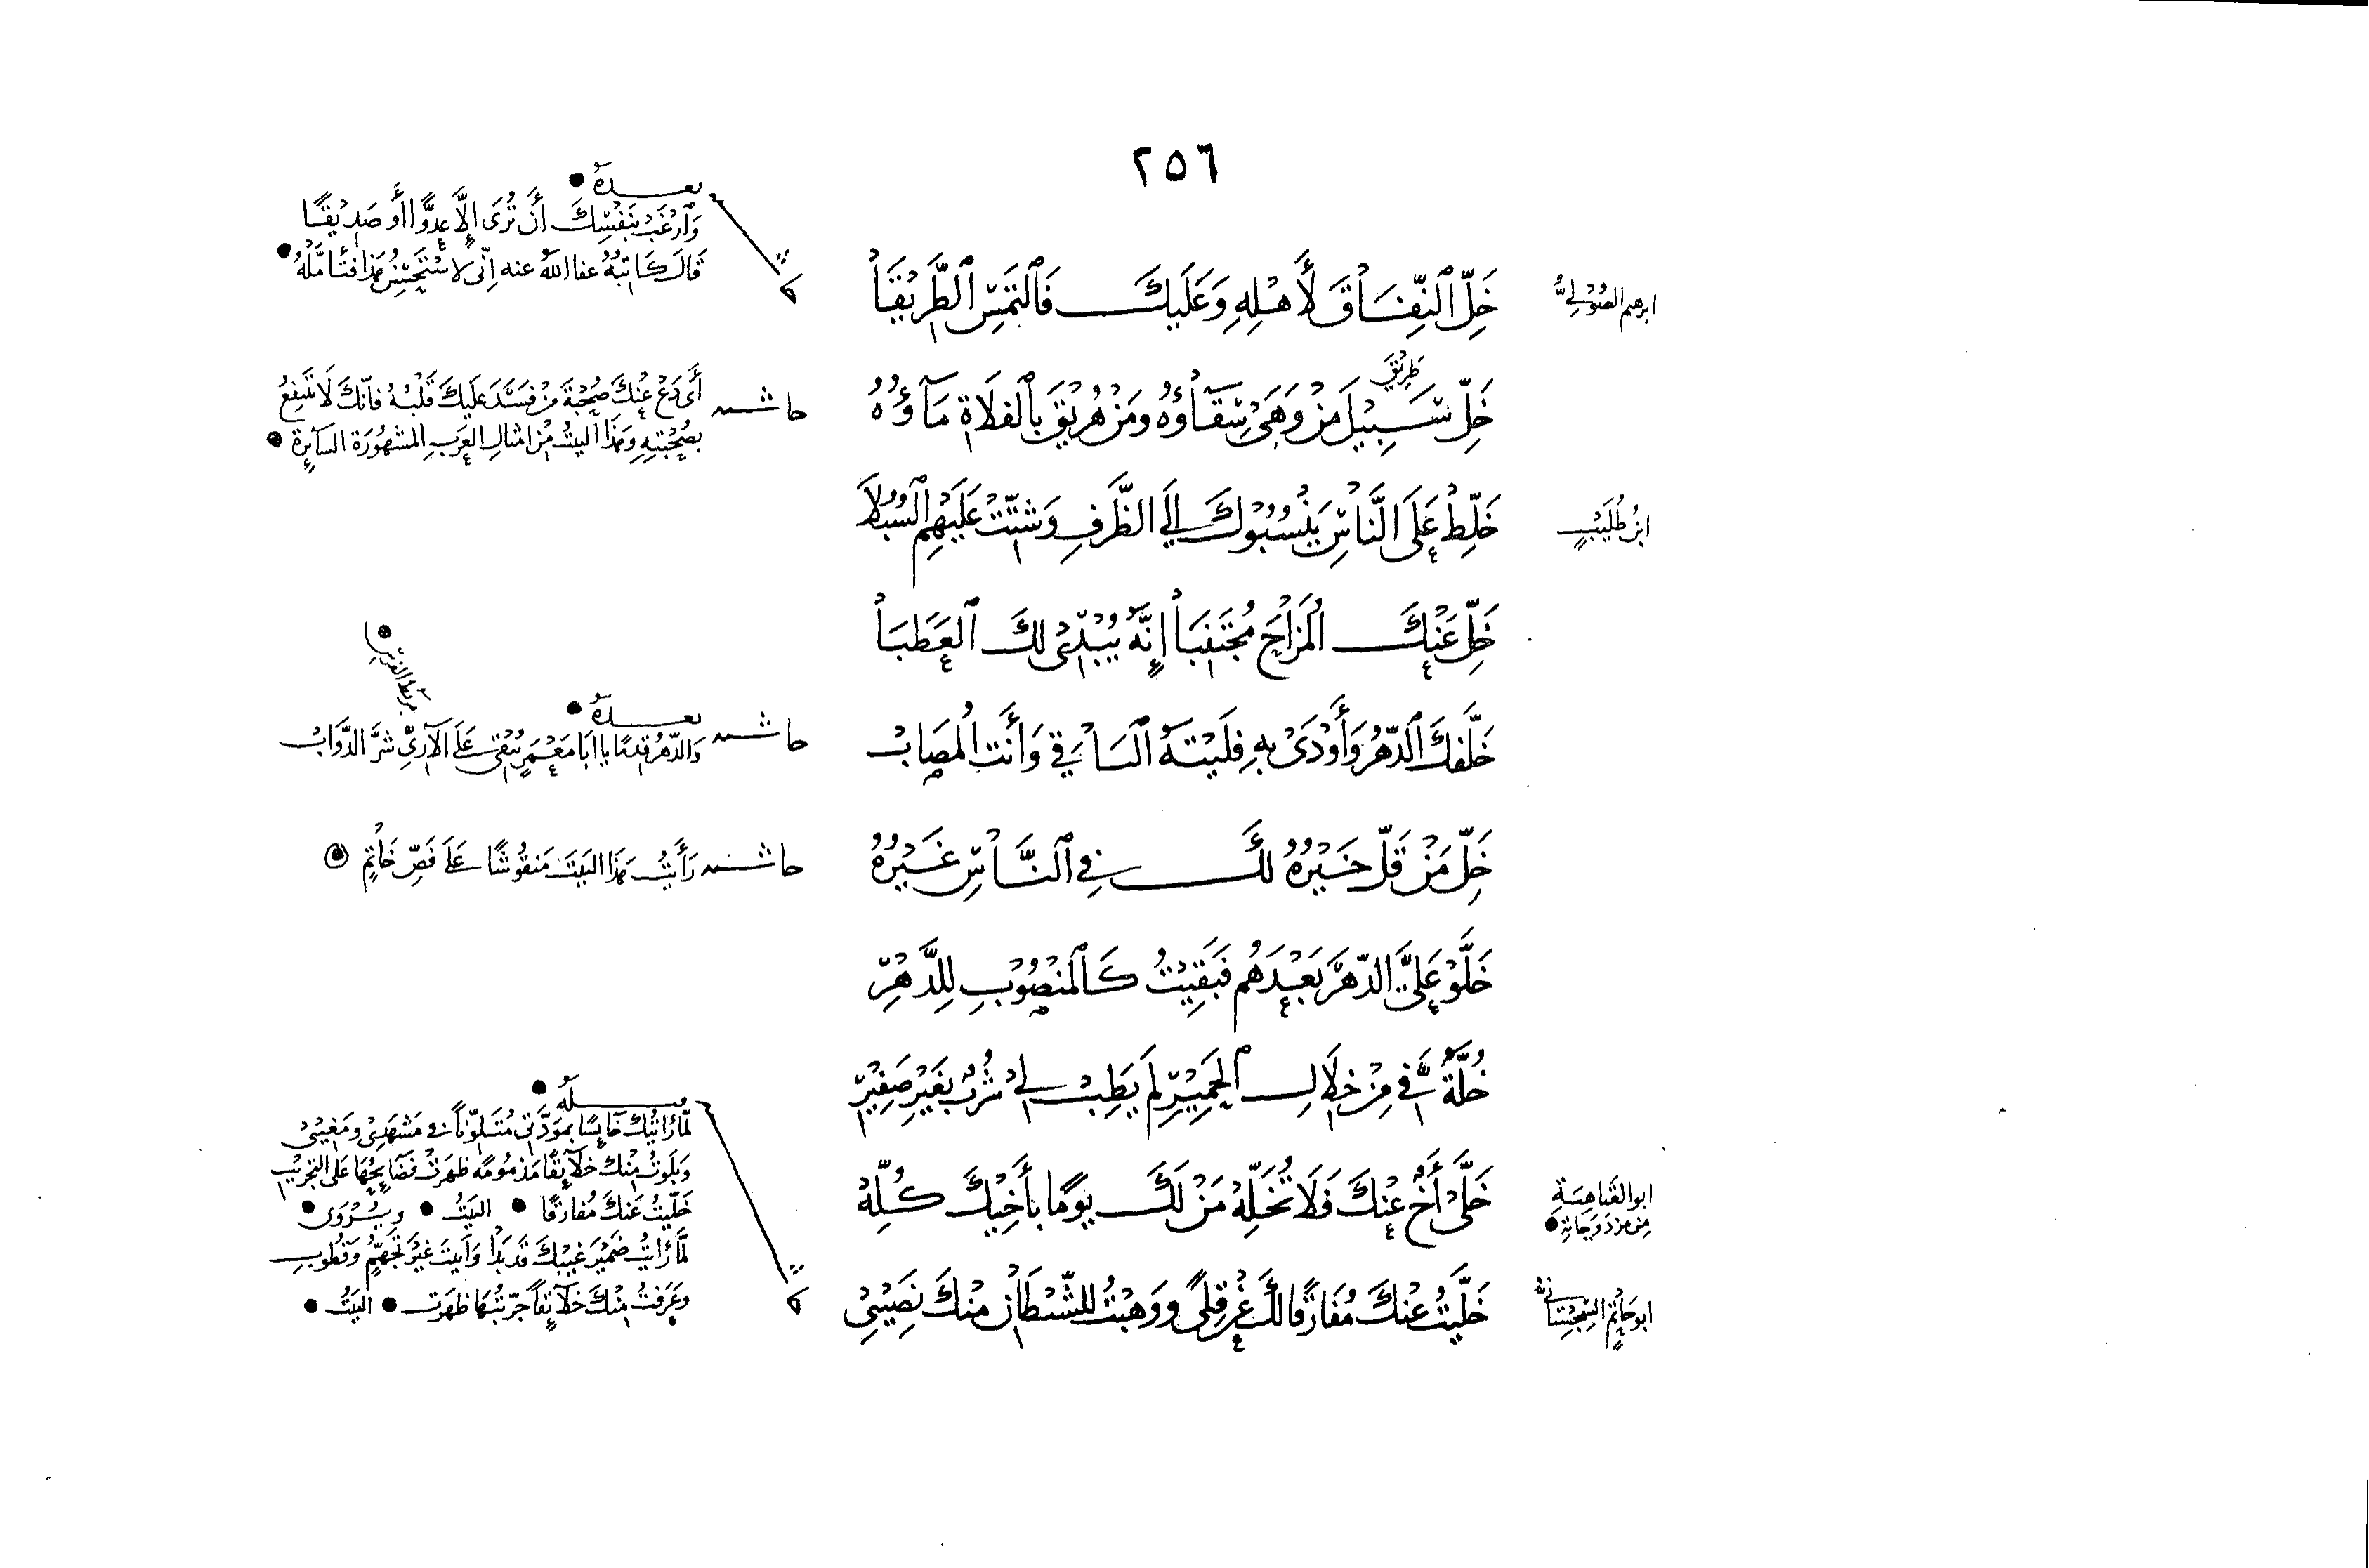 ٢٥٦
ابرهيم الصولي
خَلِّ النِّفَاقَ لأَهْلِهِ وَعَلَيكَ فَالتَمِسِ الطَّرِيْقَا
بعده
وَارْغَبْ بِنَفْسِكَ أَنْ تُرَى إِلَّا عَدُوًّا أَو صَدِيْقًا
قَالَ كَاتِبُهُ عفا الله عنه إنّى لا هَذَا فتأمَّلْهُ
طَرِيْقَ
خَلِّ سَبِيْلَ مَنْ وَهَى سِقَاؤُهُ ومَنْ هُرِيْقَ بِالفَلَاةِ مَاؤُهُ
حاشية أَى دَعْ عَنْكَ صُحْبَةَ مَنْ فَسَدَ عَلَيكَ قَلْبُهُ فَإنّكَ لَا تَنْتَفِعُ
بصُحْبَتِهِ وَهَذَا البيتُ مِنْ امثالِ العَرَبِ المشهُورَة السَائِرة
ابن طُلَيبٍ
خَلِّطْ عَلَى النَّاسِ يَنْسُبُوكَ إلى الظَّرفِ وَشَتِّتْ عَلَيهِم السُّبُلَا
خَلِّ عَنْكَ المُزَاحَ مُجْتَنِبًا إِنَّهُ يُبْدِى لكَ العَطَبَا
خَلَّفَكَ الدَّهْرُ وَأَوْدَى بِهِ فَلَيْتَهُ البَاقِي وَأَنتَ المُصَاب
حاشية بعده
وَالدَّهرُ قِدمًا يا ابَا مَعْمَرٍ يُبْقِي عَلَى الآرِيِّ شَرَّ الدَّوَاب
خَلِّ مَنْ قَلَّ خَيْرُهُ لكَ في النَّاسِ غَيْرُهُ
حاشية رَأَيْتُ هَذَا البَيتَ مَنقُوشًا عَلَى فَصِّ خَاتِمٍ
خَلَّوْ عَلَيَّ الدَّهْرَ بَعْدَهُم فَبَقِيْتُ كَالمَنْصُوْبِ لِلدَّهْرِ
خُلَّةٌ فيَّ مِنْ خِلَالِ الحَمِيْرِ لَم يَطِبْ لي شُرْبٌ بغَيرِ صَفِيْرِ
ابو العَتاهِيَةِ
مِن مزدوجاته
خَلَّى أَخٌ عَنْكَ فَلَا تُخَلِّهْ مَنْ لَكَ يومًا بأَخِيْكَ كُلِّهْ
ابو حَاتِم السِّجِسْتَانيُّ
خَلَّيتُ عَنْكَ مُفَارِقًا لكَ عَنْ قِلىً ووَهَبْتُ للشَّيطَانِ مِنْكَ نَصِيْبِي
قبله
لَمَّا رَأيتُكَ خَائِسًا بمَوَدَّتي مُتَلَوِّنًا في مَشْهَدِي ومَغِيْبي
وَبَلَوتُ مِنْكَ خلَائِقًا مَذمُومَةً ظَهَرَتْ فَضَايِحُهَا عَلَى التجْرِيْبِ
خَلَّيْتُ عَنكَ مُفارِقًا البَيتُ ويُرْوَى
لَمَّا رَأيتُ ضَمِيْرَ غَيْبِكَ قَد بَدَا وَأَبيتَ غيرَ تَجَهُّمٍ وَقُطُوبِ
وعَرَفتُ مِنْكَ خلَائِقًا جَرَّبْتُهَا ظَهَرَت البَيتُ